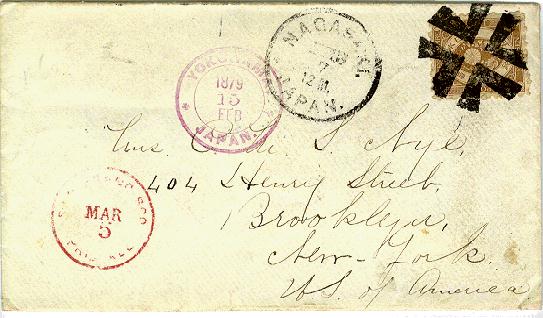 YOKOHAMA
1879
15
FEB
JAPAN.
NAGASAKI.
7
12 M.
JAPAN.
Nye,
404 Henry Street,
Brooklyn,
New-York.
U.S. of America
MAR
5